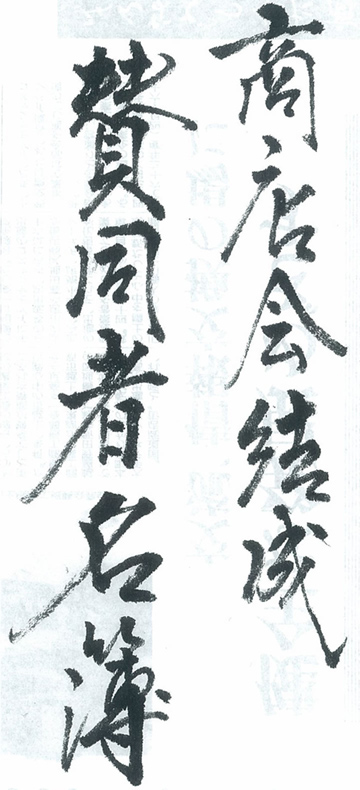 商店会結成
賛同者名簿